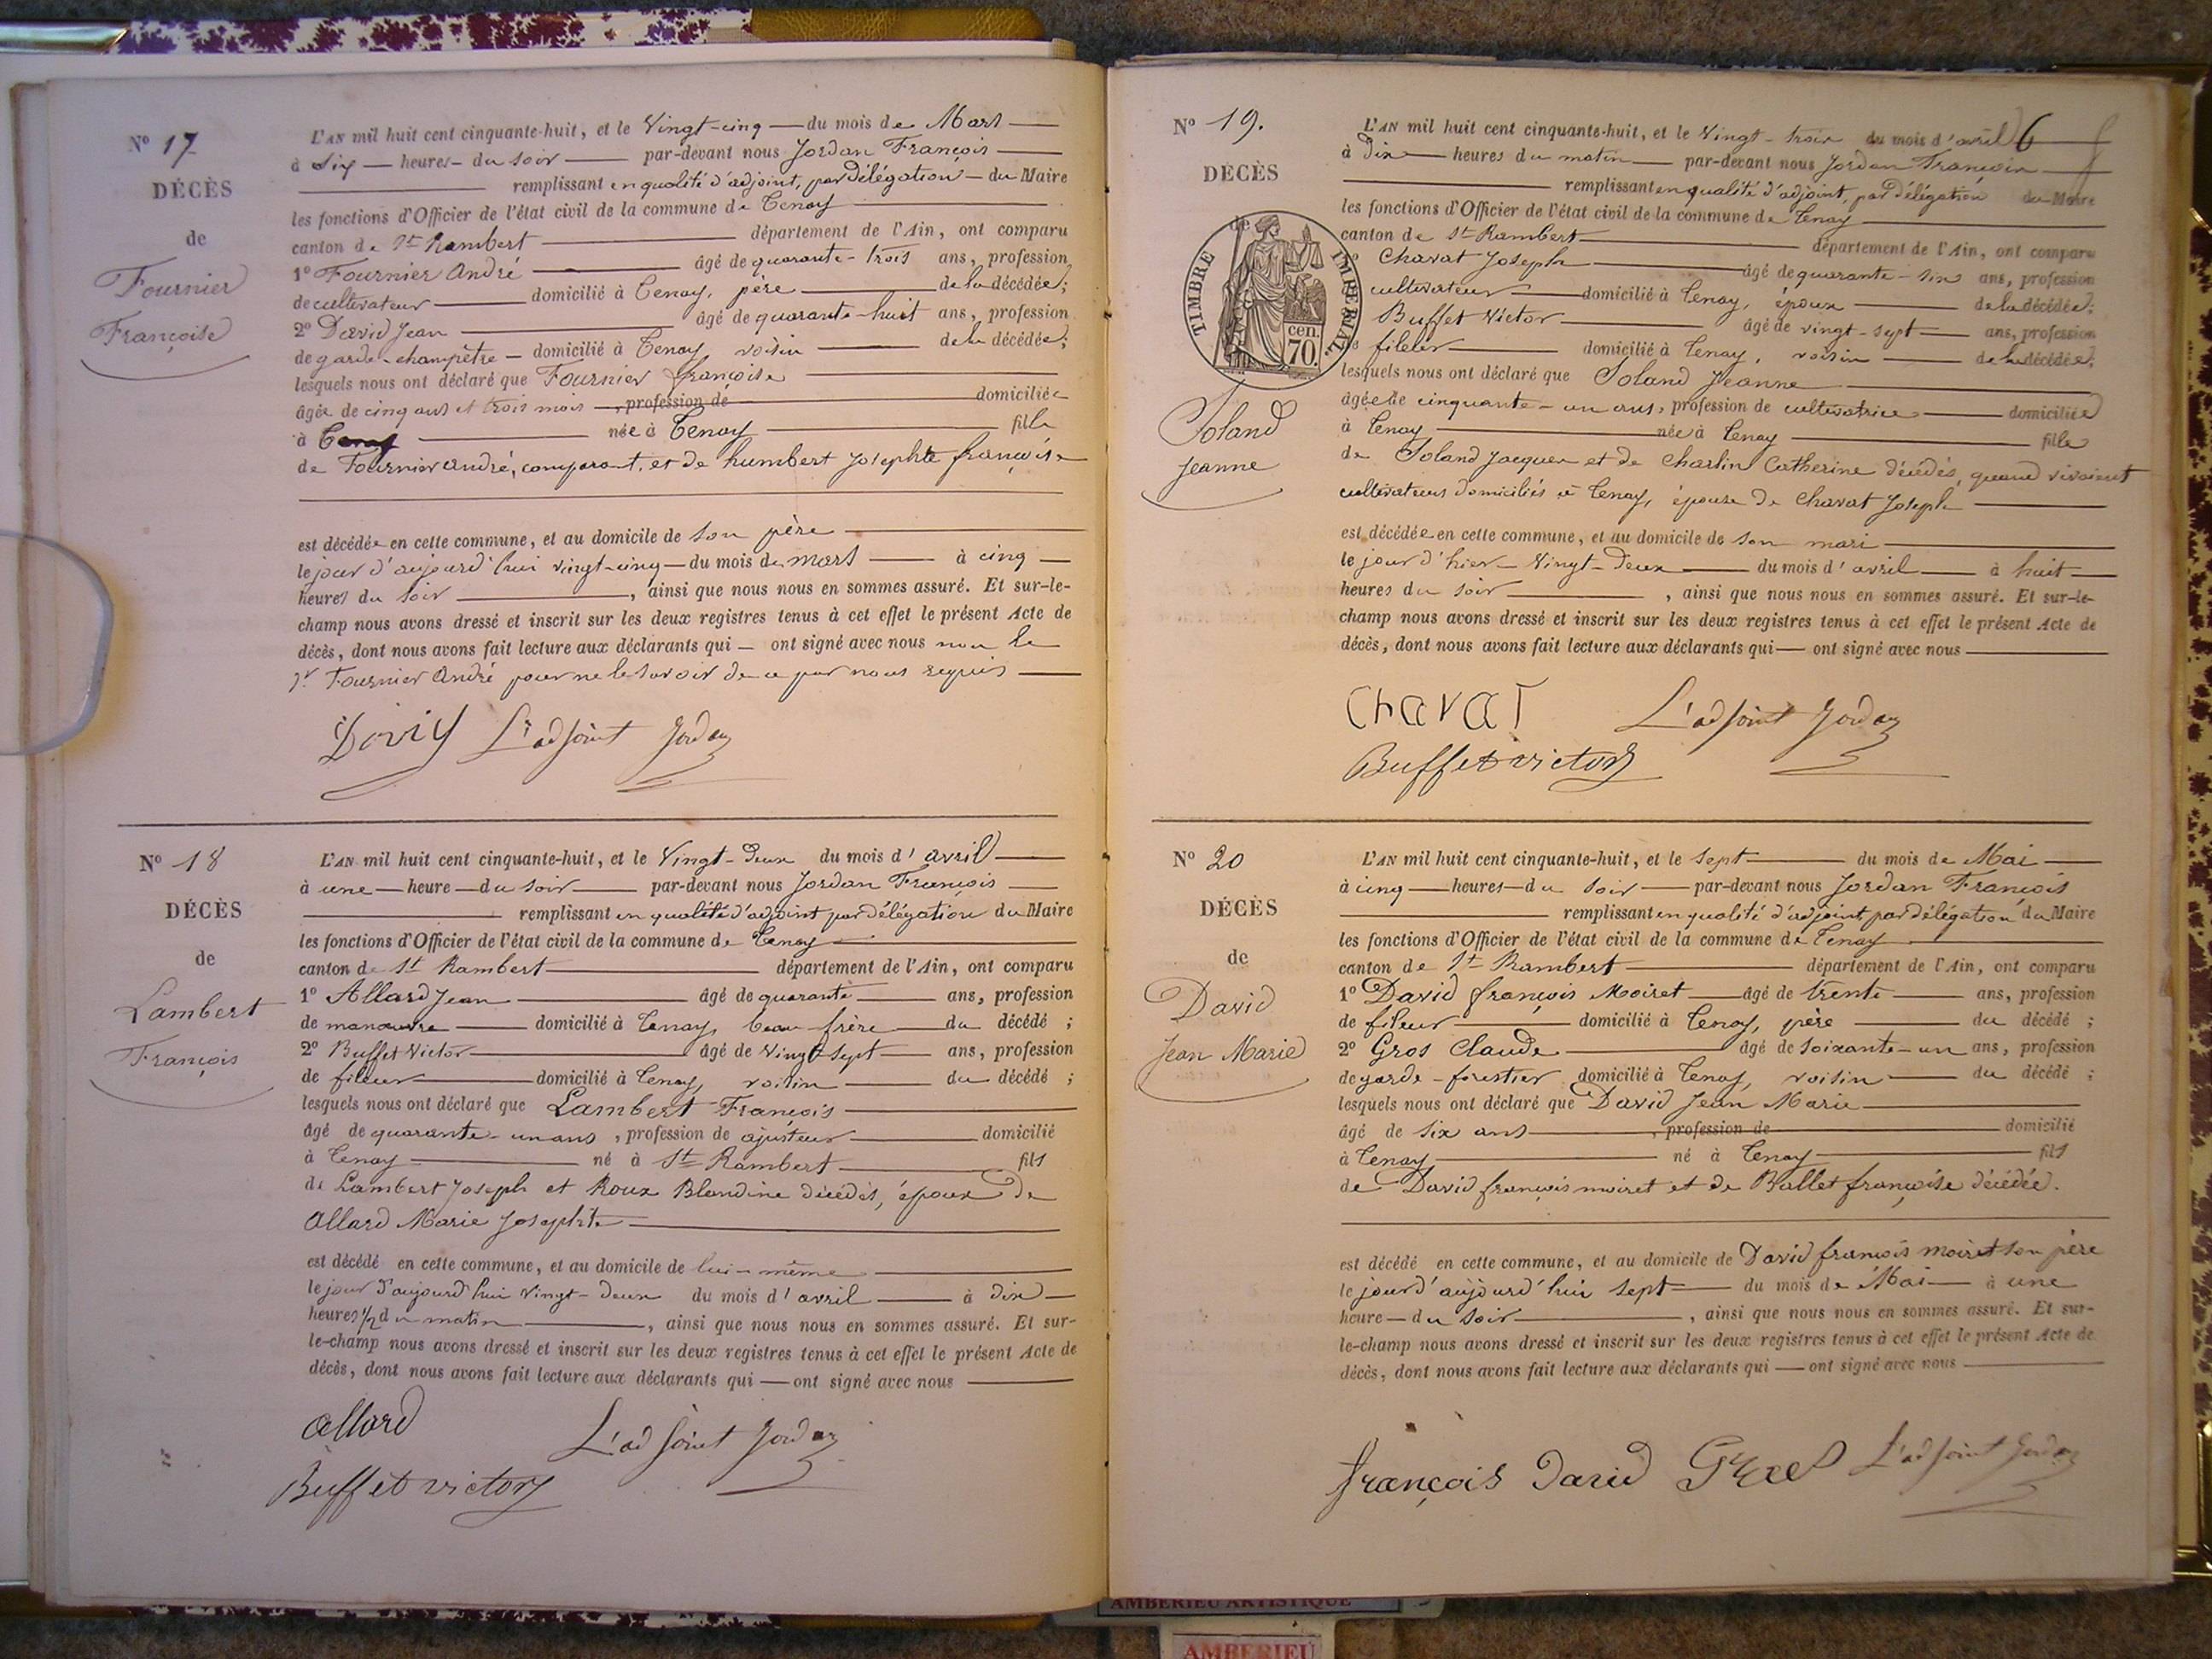 Nº 17
DÉCÈS
de
Fournier
Françoise
L'AN mil huit cent cinquante-huit, et le Vingt-cinq du mois de Mars
à Six heures du soir par-devant nous Jordan François
remplissant en qualité d'adjoint, par Délégation du Maire
les fonctions d'Officier de l'état civil de la commune de Tenay
canton de St Rambert département de l'Ain, ont comparu
1º Fournier André âgé de quarante-trois ans, profession
de cultivateur domicilié à Tenay, père de la décédée;
2º David Jean âgé de quarante-huit ans, profession
de garde-champêtre domicilié à Tenay, voisin de la décédée;
lesquels nous ont déclaré que Fournier françoise
âgée de cinq ans et trois mois, profession de domiciliée
à Tenay née à Tenay fille
de Fournier andré, comparant, et de humbert Josephte françoise
est décédée en cette commune, et au domicile de son père
le jour d'aujourd'hui vingt-cinq du mois de mars à cinq
heures du soir, ainsi que nous nous en sommes assuré. Et sur-le-
champ nous avons dressé et inscrit sur les deux registres tenus à cet effet le présent Acte de
décès, dont nous avons fait lecture aux déclarants qui ont signé avec nous non le
sr Fournier André pour ne le savoir de ce par nous requis
David L'adjoint Jordan
Nº 18
DÉCÈS
de
Lambert
François
L'AN mil huit cent cinquante-huit, et le Vingt-deux du mois d'avril
à une heure du soir par-devant nous Jordan François
remplissant en qualité d'adjoint par délégation du Maire
les fonctions d'Officier de l'état civil de la commune de Tenay
canton de St Rambert département de l'Ain, ont comparu
1º Allard Jean âgé de quarante ans, profession
de manœuvre domicilié à Tenay, beau-frère du décédé;
2º Buffet Victor âgé de Vingt-sept ans, profession
de fileur domicilié à Tenay, voisin du décédé;
lesquels nous ont déclaré que Lambert François
âgé de quarante-un ans, profession de ajusteur domicilié
à Tenay né à St Rambert fils
de Lambert Joseph et Roux Blandine décédés, époux de
Allard Marie Josephte
est décédé en cette commune, et au domicile de lui-même
le jour d'aujourd'hui Vingt-deux du mois d'avril à dix
heures 1/2 du matin, ainsi que nous nous en sommes assuré. Et sur-
le-champ nous avons dressé et inscrit sur les deux registres tenus à cet effet le présent Acte de
décès, dont nous avons fait lecture aux déclarants qui ont signé avec nous
allard L'adjoint Jordan
Buffet victor
Nº 19.
DÉCÈS
de
TIMBRE IMPÉRIAL
70 cen.
Soland
Jeanne
L'AN mil huit cent cinquante-huit, et le Vingt-trois du mois d'avril 6
à Dix heures du matin par-devant nous Jordan François
remplissant en qualité d'adjoint, par délégation du Maire
les fonctions d'Officier de l'état civil de la commune de Tenay
canton de St Rambert département de l'Ain, ont comparu
Chavat Joseph âgé de quarante-six ans, profession
cultivateur domicilié à Tenay, époux de la décédée;
Buffet Victor âgé de vingt-sept ans, profession
fileur domicilié à Tenay, voisin de la décédée;
lesquels nous ont déclaré que Soland Jeanne
âgée de cinquante-un ans, profession de cultivatrice domiciliée
à Tenay née à Tenay fille
de Soland Jacques et de Charlin Catherine décédés, quand vivaient
cultivateurs domiciliés à Tenay, épouse de Chavat Joseph
est décédée en cette commune, et au domicile de son mari
le jour d'hier Vingt-Deux du mois d'avril à huit
heures du soir, ainsi que nous nous en sommes assuré. Et sur-le-
champ nous avons dressé et inscrit sur les deux registres tenus à cet effet le présent Acte de
décès, dont nous avons fait lecture aux déclarants qui ont signé avec nous
ChavaT L'adjoint Jordan
Buffet victor
Nº 20
DÉCÈS
de
David
Jean Marie
L'AN mil huit cent cinquante-huit, et le Sept du mois de Mai
à cinq heures du soir par-devant nous Jordan François
remplissant en qualité d'adjoint, par délégation du Maire
les fonctions d'Officier de l'état civil de la commune de Tenay
canton de St Rambert département de l'Ain, ont comparu
1º David françois Moiret âgé de trente ans, profession
de fileur domicilié à Tenay, père du décédé;
2º Gros Claude âgé de soixante-un ans, profession
de garde-forestier domicilié à Tenay, voisin du décédé;
lesquels nous ont déclaré que David Jean Marie
âgé de six ans, profession de domicilié
à Tenay né à Tenay fils
de David françois moiret et de Ballet françoise décédée.
est décédé en cette commune, et au domicile de David françois moiret son père
le jour d'aujourd'hui sept du mois de Mai à une
heure du soir, ainsi que nous nous en sommes assuré. Et sur-
le-champ nous avons dressé et inscrit sur les deux registres tenus à cet effet le présent Acte de
décès, dont nous avons fait lecture aux déclarants qui ont signé avec nous
françois David Gros L'adjoint Jordan
AMBERIEU ARTISTIQUE
AMBERIEU